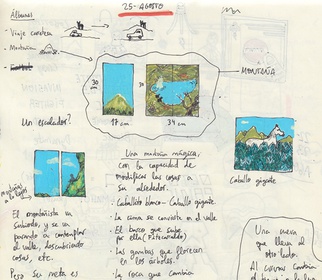 25-AGOSTO
Álbumes
- Viaje carretera
- Montaña
MONTAÑA
30
30
17 cm
34 cm
Un escalador?
Una montaña mágica:
con la capacidad de
modificar las cosas a
su alrededor.
- Caballito blanco - Caballo gigante
- La cima se convierte en el valle
- El barco que sube
por ella (Fitzcarraldo)
- Las gambas que florecen
en los bosques
- La roca que cambia
Caballo gigante
El montañista va
subiendo, y se va
parando a contemplar
el valle, descubriendo
cosas, etc.
Pero su meta es
Una cueva
que lleva al
otro lado.
Al cruzar cambia